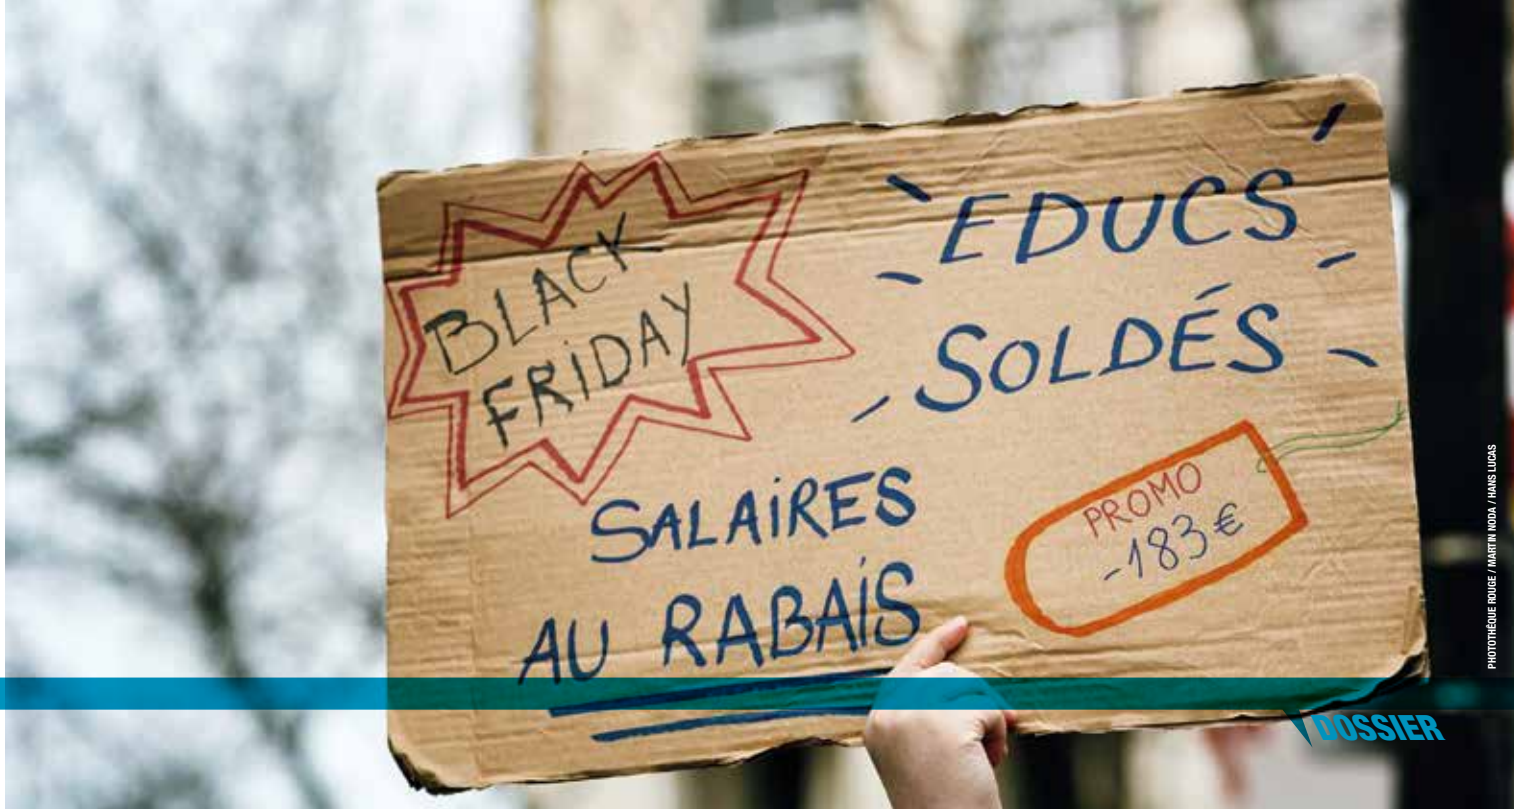 BLACK
FRIDAY
EDUCS
SOLDÉS
SALAIRES
AU RABAIS
PROMO
-183€
DOSSIER
PHOTOTHÈQUE ROUGE / MARTIN NODA / HANS LUCAS